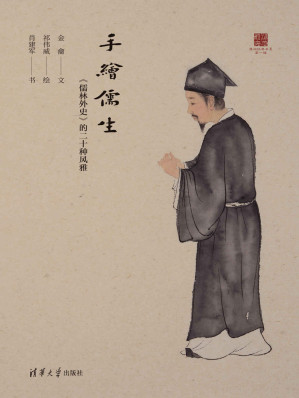 手繪儒生
《儒林外史》的二十种风雅
金鑫——文
郭伟威——绘
肖建军——书
清华大学出版社